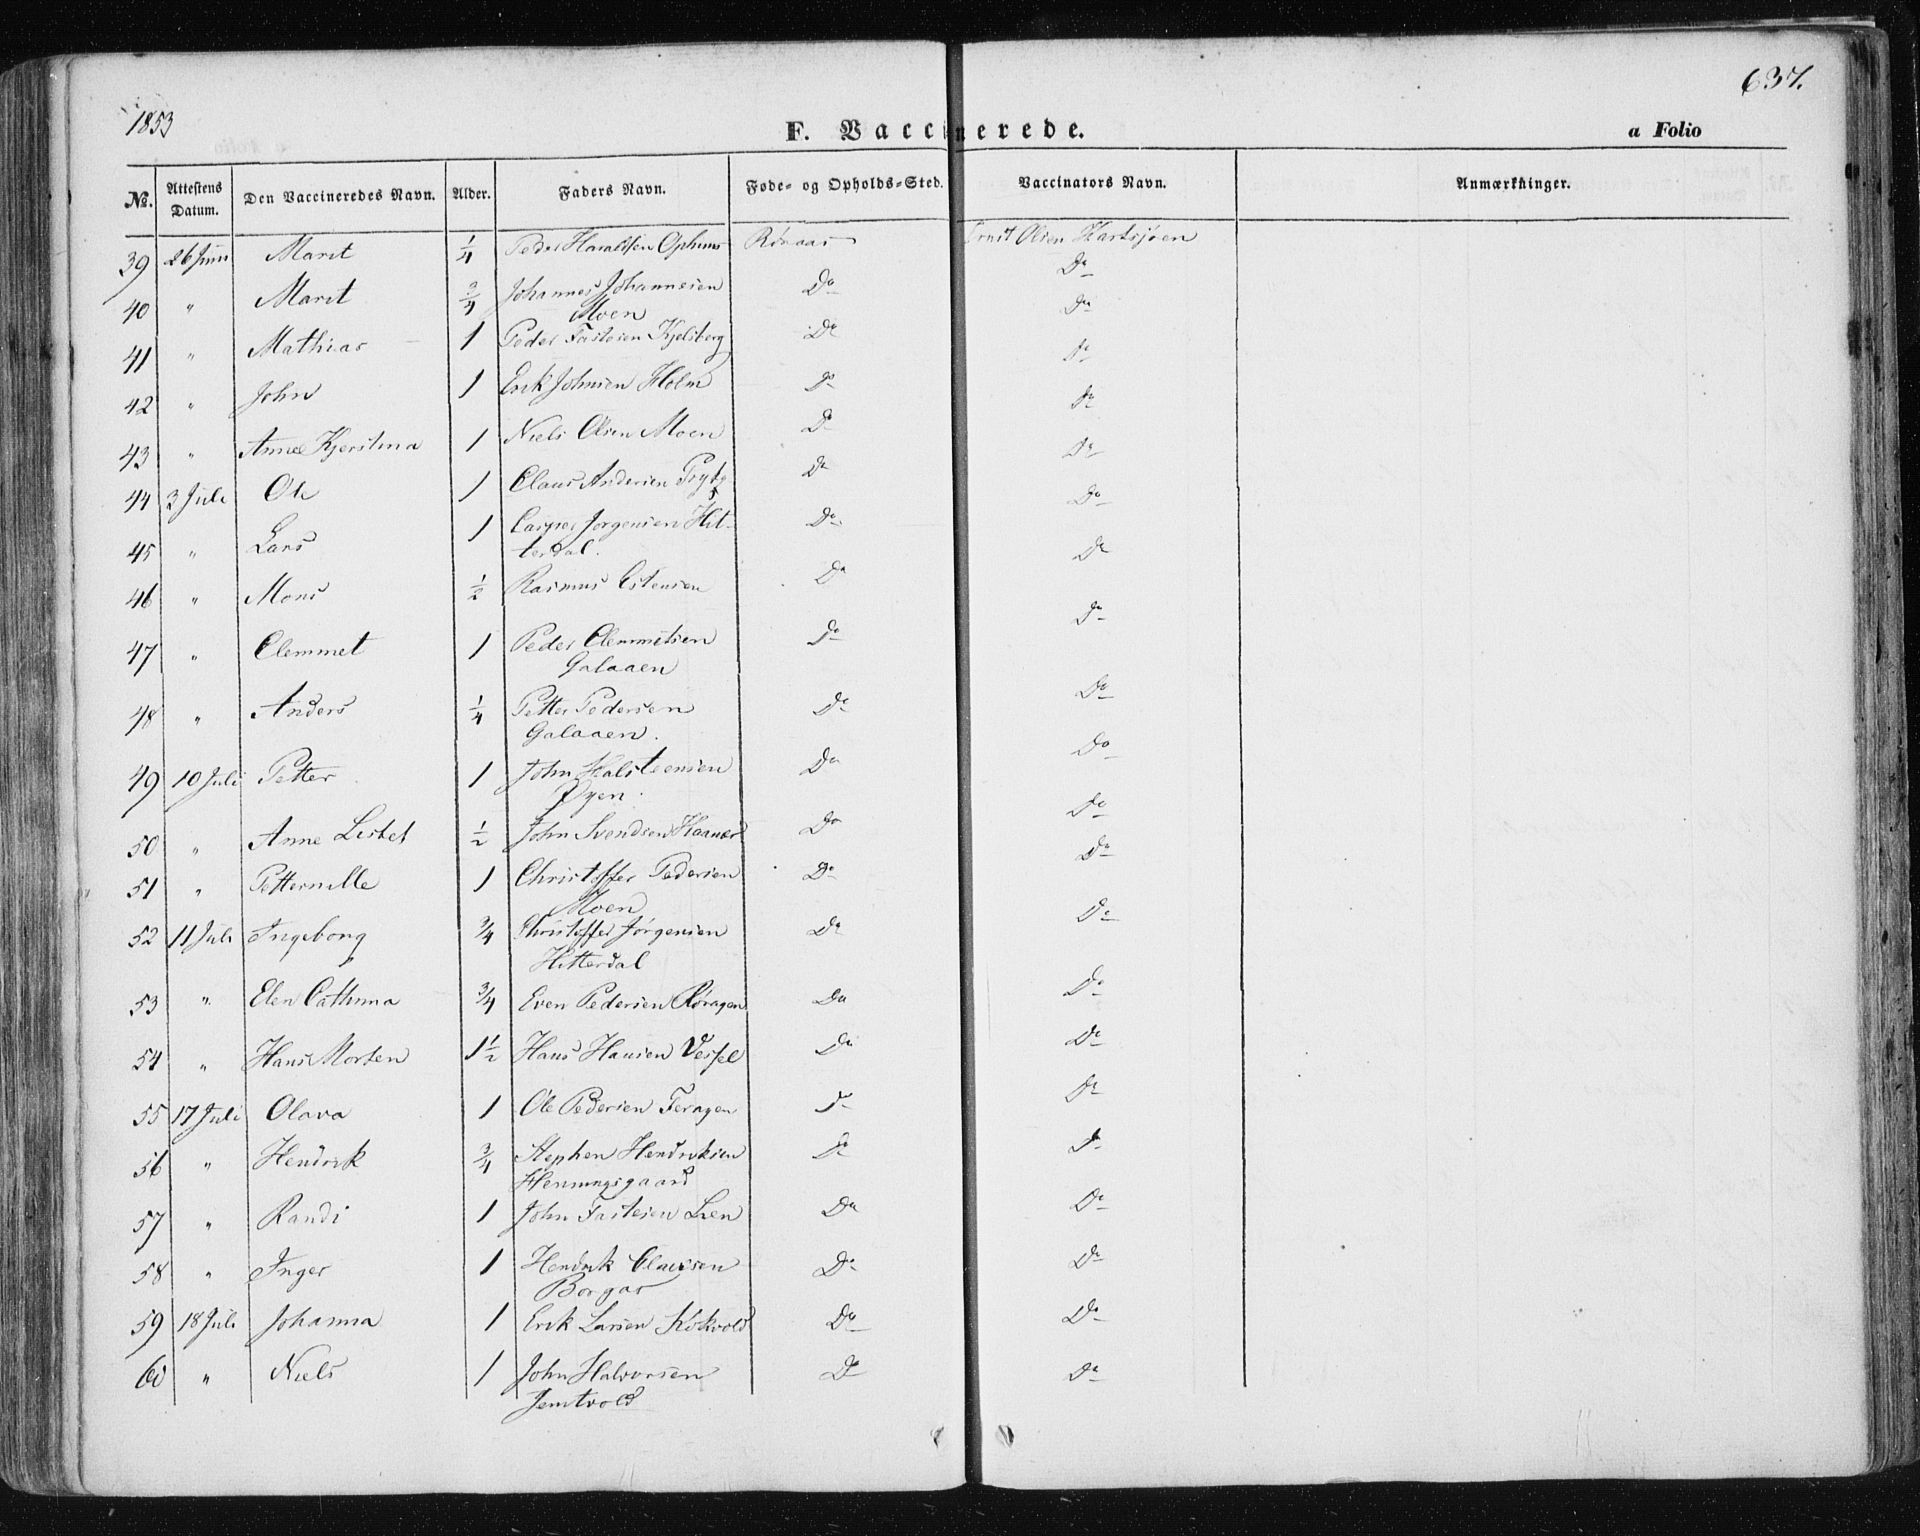 1853
637.
F. Vaccinerede.
a Folio
№. Attestens Datum. Den Vaccineredes Navn. Alder. Faders Navn. Føde- og Opholds-Sted. Vaccinators Navn. Anmærkninger.
39 26 Juni Marit 1/4 Peder Haraldsen Røraas Olsen Hartsjøen
40 " Marit 3/4 Johannes Johannesen Do Do
Moen
41 " Mathias 1 Peder Fastesen Kjelsberg Do Do
42 " John 1 Erik Johnsen Holm Do Do
43 " Anne Kjerstina 1 Niels Olsen Moen Do Do
44 3 Juli Ole 1 Claus Andersen Do Do
45 " Lars 1 Casper Jørgensen Hit- Do Do
terdal.
46 " Mons 1/2 Rasmus Estensen Do Do
47 " Clemmet 1 Peder Clemmetsen Do Do
Galaaen
48 " Anders 1/4 Petter Pedersen Do Do
Galaaen.
49 10 Juli Petter 1 John Halsteensen Do Do
Øyen.
50 " Anne Lisbet 1/2 John Svendsen Do Do
51 " Petternille 1 Christoffer Pedersen Do Do
Moen
52 11 Juli Ingeborg 3/4 Christoffer Jørgensen Do Do
Hitterdal
53 " Elen Cathrina 3/4 Even Pedersen Røragen Do Do
54 " Hans Morten 1 1/2 Hans Hansen Vessel Do Do
55 17 Juli Olava 1 Ole Pedersen Feragen Do Do
56 " Hendrik 3/4 Stephen Hendriksen Do Do
Henningsgaard
57 " Randi 1 John Fastesen Lien Do Do
58 " Inger 1 Hendrik Claussen Do Do
Borgas
59 18 Juli Johanna 1 Erik Larsen Kokvold Do Do
60 " Niels 1 John Halvorsen Do Do
Jemtvold